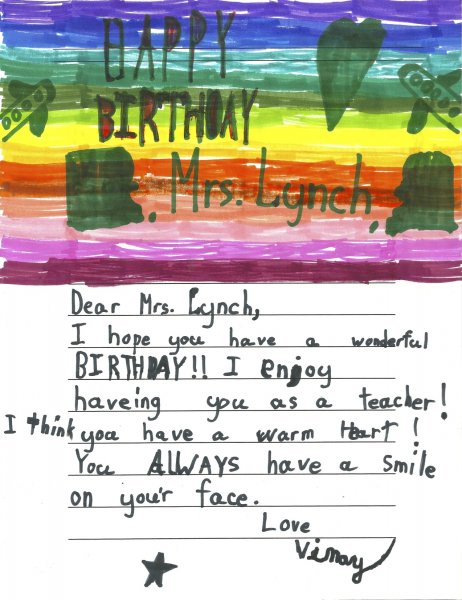 HAPPY
BIRTHDAY
Mrs. Lynch.
Dear Mrs. Lynch,
I hope you have a wonderful
BIRTHDAY!! I enjoy
haveing you as a teacher!
I think you have a warm Heart!
You ALWAYS have a smile
on you'r face.
Love
Vinay